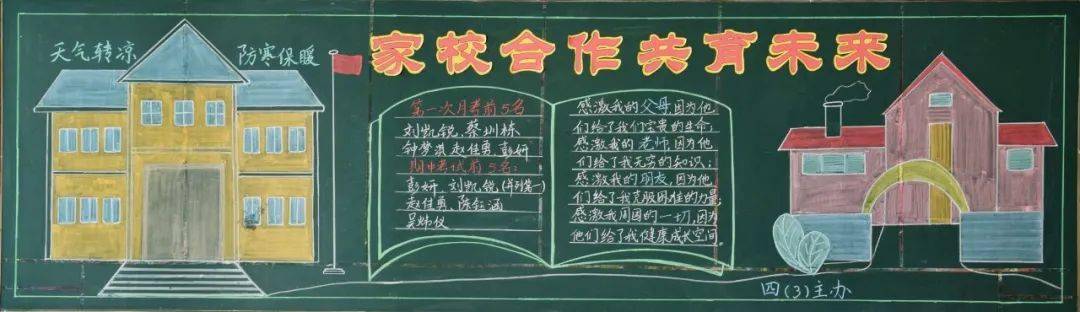 家校合作共育未来
天气转凉
防寒保暖
第一次月考前5名
刘凯锐、蔡圳栋
钟梦淇、赵佳勇、彭妍
期中考试前5名:
彭妍、刘凯锐(并列第一)
赵佳勇、陈钰涵
吴炜仪
感激我的父母因为他
们给了我们宝贵的生命;
感激我的老师,因为他
们给了我无穷的知识;
感激我的朋友,因为他
们给了我克服困难的力量;
感激我周围的一切,因为
他们给了我健康成长空间
四(3)主办